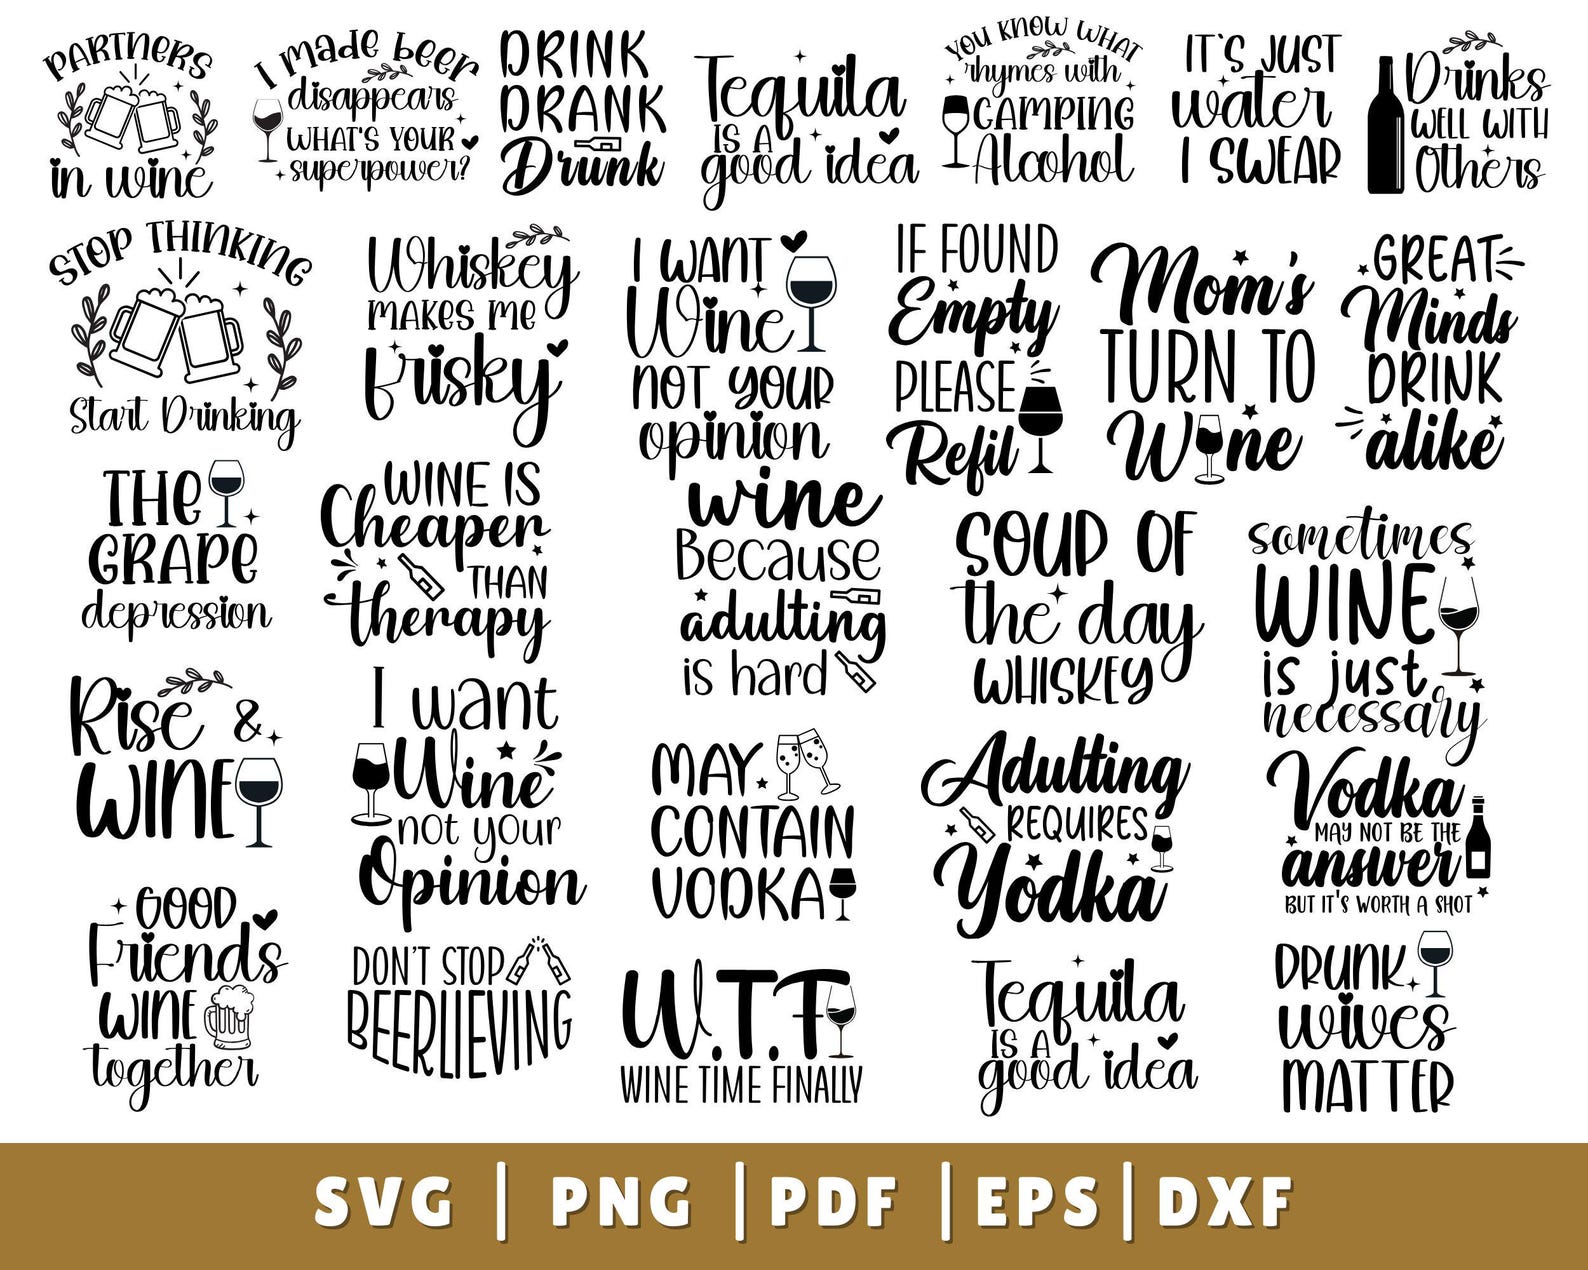 PARTNERS
in wine
I made beer
disappears
WHAT'S YOUR
superpower?
DRINK
DRANK
Drunk
Tequila
IS A
good idea
YOU KNOW WHAT
rhymes with
CAMPING
Alcohol
IT'S JUST
water
I SWEAR
Drinks
WELL WITH
Others
STOP THINKING
Start Drinking
Whiskey
MAKES ME
frisky
I WANT
Wine
NOT YOUR
opinion
IF FOUND
Empty
PLEASE
Refil
Mom's
TURN TO
Wine
GREAT
Minds
DRINK
alike
THE
GRAPE
depression
WINE IS
Cheaper
THAN
therapy
wine
Because
adulting
is hard
SOUP OF
the day
WHISKEY
sometimes
WINE
is just
necessary
Rise &
WINE
I want
Wine
not your
Opinion
MAY
CONTAIN
VODKA
Adulting
REQUIRES
Yodka
Vodka
MAY NOT BE THE
answer
BUT IT'S WORTH A SHOT
GOOD
Friends
WINE
together
DON'T STOP
BEERLIEVING
W.T.F
WINE TIME FINALLY
Tequila
IS A
good idea
DRUNK
wives
MATTER
SVG | PNG | PDF | EPS | DXF